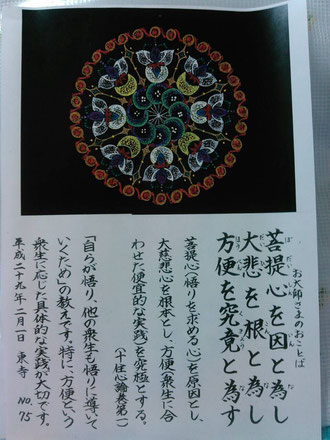 お大師さまのおことば
菩提心を因と為し
大悲を根と為し
方便を究竟と為す
菩提心(悟りを求める心)を原因とし、
大慈悲心を根本とし、方便(衆生に合
わせた便宜的な実践)を究極とする。
(十住心論巻第一)
「自らが悟り、他の衆生も悟りに導いて
いくため」の教えです。特に、方便という
衆生に応じた具体的な実践が大切です。
平成二十九年二月一日 東寺 NO.75